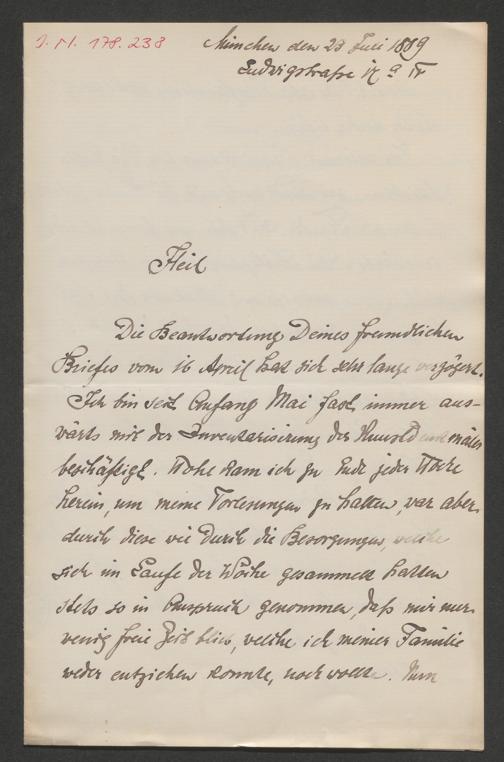 J. N. 178.238
München den 23 Juli 1889
Ludwigstrasse 17 a IV
Heil
Die Beantwortung Deines freundlichen
Briefes vom 16 April hat sich sehr lange verzögert.
Ich bin seit Anfang Mai fast immer aus-
wärts mit der Inventarisirung der Kunstdenkmäler
beschäftigt. Wohl kam ich zu Ende jeder Woche
herein, um meine Vorlesungen zu halten, war aber
durch diese wie durch die Besorgungen, welche
sich im Laufe der Woche gesammelt hatten
stets so in Anspruch genommen, daß mir nur
wenig freie Zeit blieb, welche ich meiner Familie
weder entziehen konnte, noch wollte. Nun